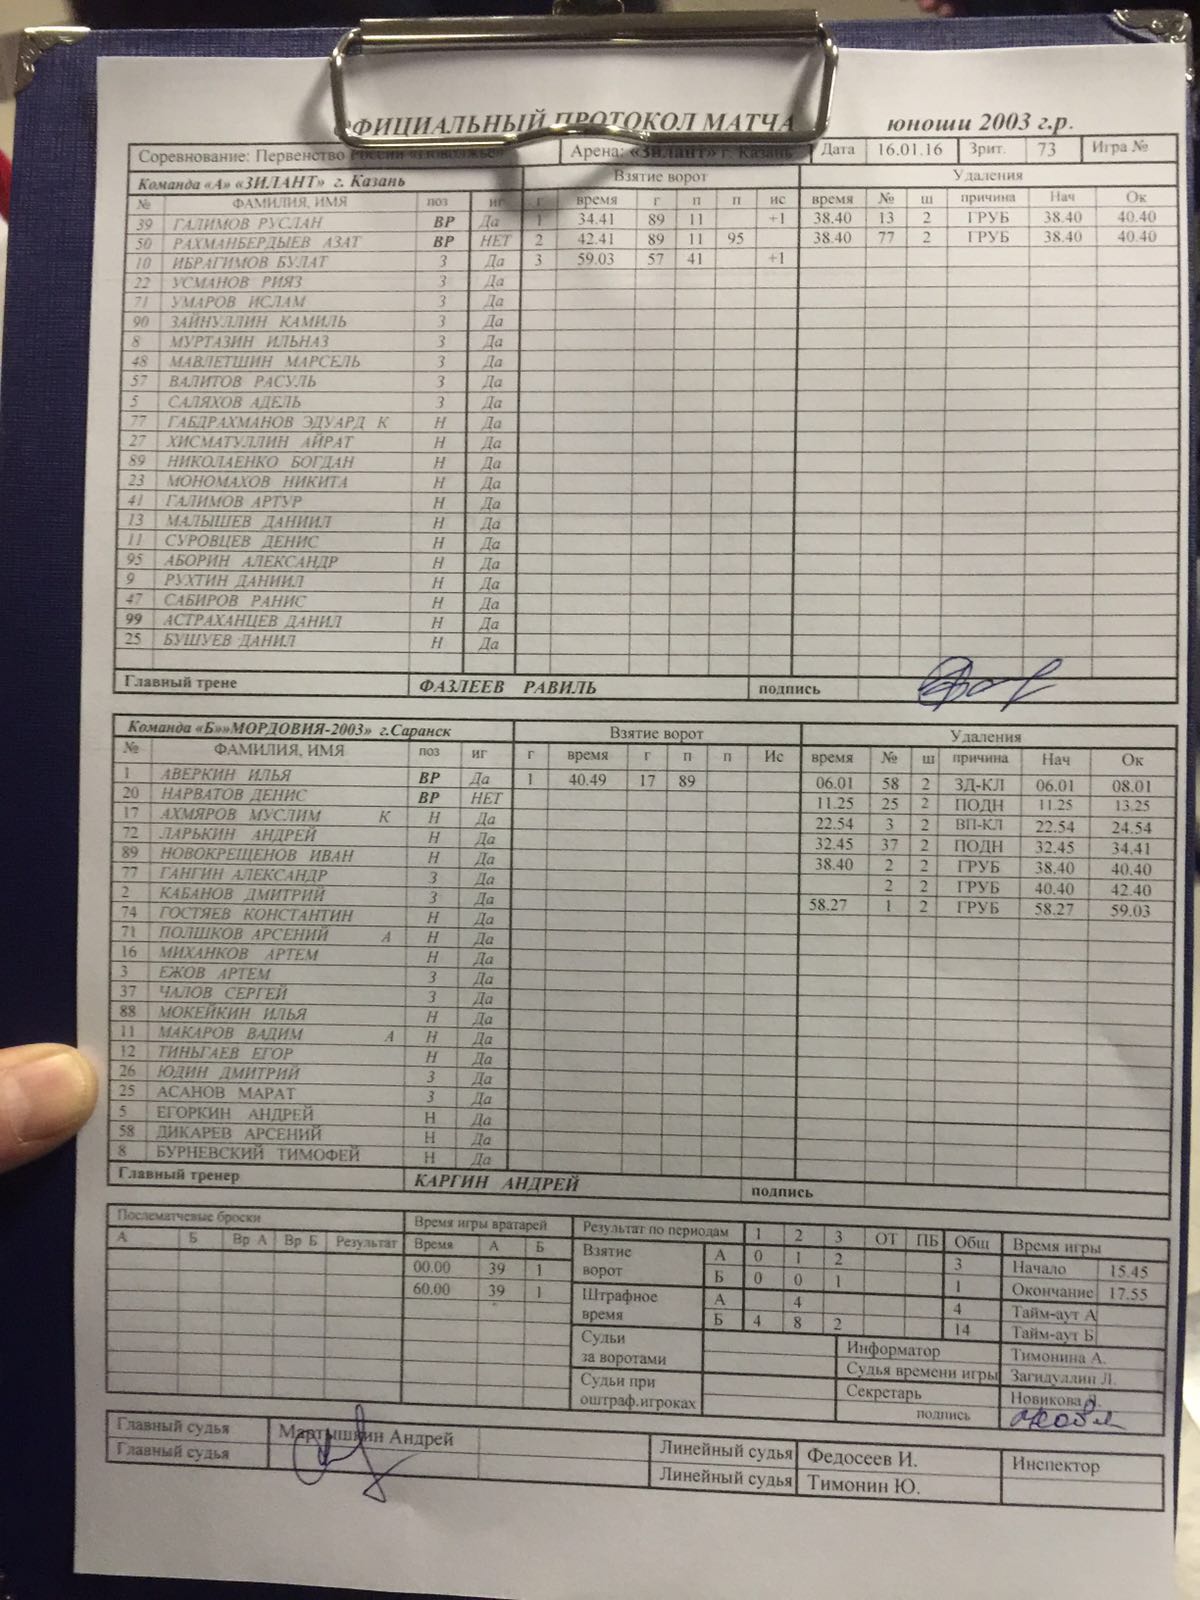 ОФИЦИАЛЬНЫЙ ПРОТОКОЛ МАТЧА юноши 2003 г.р.
Соревнование: Первенство России «Поволжье» Арена: «Зилант» г. Казань Дата 16.01.16 Зрит. 73 Игра №
Команда «А» «ЗИЛАНТ» г. Казань Взятие ворот Удаления
№ ФАМИЛИЯ, ИМЯ поз иг г время г п п ис время № ш причина Нач Ок
39 ГАЛИМОВ РУСЛАН ВР Да 1 34.41 89 11 +1 38.40 13 2 ГРУБ 38.40 40.40
50 РАХМАНБЕРДЫЕВ АЗАТ ВР НЕТ 2 42.41 89 11 95 38.40 77 2 ГРУБ 38.40 40.40
10 ИБРАГИМОВ БУЛАТ З Да 3 59.03 57 41 +1
22 УСМАНОВ РИЯЗ З Да
71 УМАРОВ ИСЛАМ З Да
90 ЗАЙНУЛЛИН КАМИЛЬ З Да
8 МУРТАЗИН ИЛЬНАЗ З Да
48 МАВЛЕТШИН МАРСЕЛЬ З Да
57 ВАЛИТОВ РАСУЛЬ З Да
5 САЛЯХОВ АДЕЛЬ З Да
77 ГАБДРАХМАНОВ ЭДУАРД К Н Да
27 ХИСМАТУЛЛИН АЙРАТ Н Да
89 НИКОЛАЕНКО БОГДАН Н Да
23 МОНОМАХОВ НИКИТА Н Да
41 ГАЛИМОВ АРТУР Н Да
13 МАЛЫШЕВ ДАНИИЛ Н Да
11 СУРОВЦЕВ ДЕНИС Н Да
95 АБОРИН АЛЕКСАНДР Н Да
9 РУХТИН ДАНИИЛ Н Да
47 САБИРОВ РАНИС Н Да
99 АСТРАХАНЦЕВ ДАНИЛ Н Да
25 БУШУЕВ ДАНИЛ Н Да
Главный трене ФАЗЛЕЕВ РАВИЛЬ подпись
Команда «Б»»МОРДОВИЯ-2003» г.Саранск Взятие ворот Удаления
№ ФАМИЛИЯ, ИМЯ поз иг г время г п п Ис время № ш причина Нач Ок
1 АВЕРКИН ИЛЬЯ ВР Да 1 40.49 17 89 06.01 58 2 ЗД-КЛ 06.01 08.01
20 НАРВАТОВ ДЕНИС ВР НЕТ 11.25 25 2 ПОДН 11.25 13.25
17 АХМЯРОВ МУСЛИМ К Н Да 22.54 3 2 ВП-КЛ 22.54 24.54
72 ЛАРЬКИН АНДРЕЙ Н Да 32.45 37 2 ПОДН 32.45 34.41
89 НОВОКРЕЩЕНОВ ИВАН Н Да 38.40 2 2 ГРУБ 38.40 40.40
77 ГАНГИН АЛЕКСАНДР З Да 2 2 ГРУБ 40.40 42.40
2 КАБАНОВ ДМИТРИЙ З Да 58.27 1 2 ГРУБ 58.27 59.03
74 ГОСТЯЕВ КОНСТАНТИН Н Да
71 ПОЛШКОВ АРСЕНИЙ А Н Да
16 МИХАНКОВ АРТЕМ Н Да
3 ЕЖОВ АРТЕМ З Да
37 ЧАЛОВ СЕРГЕЙ З Да
88 МОКЕЙКИН ИЛЬЯ Н Да
11 МАКАРОВ ВАДИМ А Н Да
12 ТИНЬГАЕВ ЕГОР Н Да
26 ЮДИН ДМИТРИЙ З Да
25 АСАНОВ МАРАТ З Да
5 ЕГОРКИН АНДРЕЙ Н Да
58 ДИКАРЕВ АРСЕНИЙ Н Да
8 БУРНЕВСКИЙ ТИМОФЕЙ Н Да
Главный тренер КАРГИН АНДРЕЙ подпись
Послематчевые броски Время игры вратарей Результат по периодам 1 2 3 ОТ ПБ Общ Время игры
А Б Вр А Вр Б Результат Время А Б Взятие ворот А 0 1 2 3 Начало 15.45
00.00 39 1 Б 0 0 1 1 Окончание 17.55
60.00 39 1 Штрафное время А 4 4 Тайм-аут А
Б 4 8 2 14 Тайм-аут Б
Судьи за воротами Информатор Тимонина А.
Судья времени игры Загидуллин Л.
Судьи при оштраф.игроках Секретарь Новикова
подпись
Главный судья Мартышкин Андрей Линейный судья Федосеев И. Инспектор
Главный судья Линейный судья Тимонин Ю.